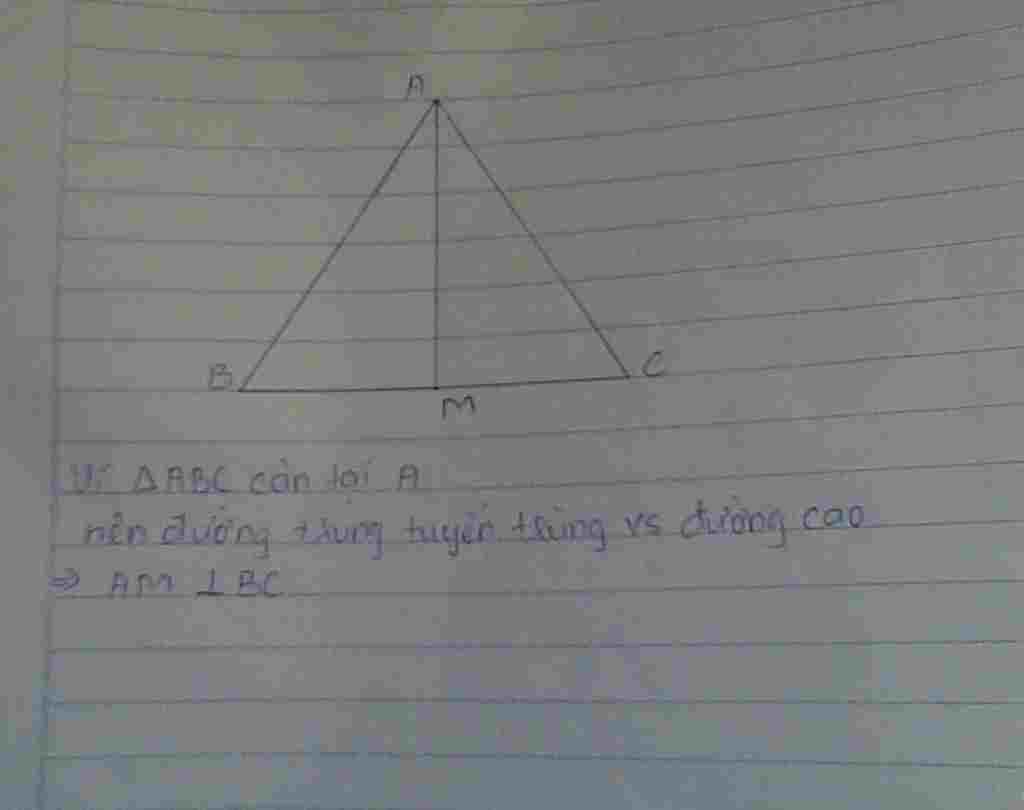 A
B
C
M
Vì ΔABC cân tại A
nên đường trung tuyến trùng vs đường cao
⇒ AM ⊥ BC